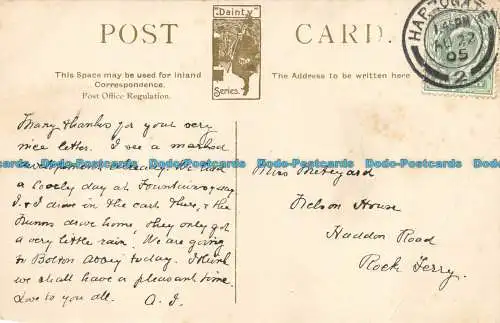 POST CARD.
"Dainty"
Series.
This Space may be used for Inland
Correspondence.
Post Office Regulation.
The Address to be written here
HARROGATE
AU 22
05
2
Many thanks for your very
nice letter. I see a marked
development already. We had
a lovely day at Fountains, may
I. & I drove in the cart there, & the
home, they only got
a very little rain. We are going
to Bolton Abbey today. I think
we shall have a pleasant time.
Love to you all. A.I.
Miss
Nelson House
Haddon Road
Rock Ferry.
Dodo-Postcards